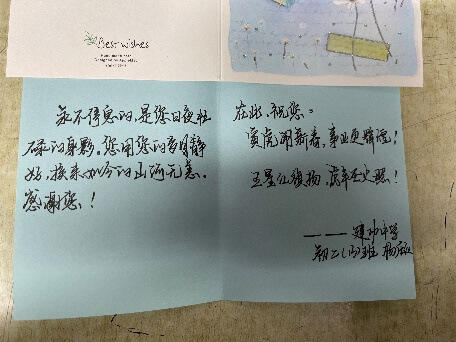 Best wishes
永不停息的,是您日夜牡
碌的身影,您用您的岁月静
好,换来如今的山河无恙。
感谢您!
在此,祝您:
寅虎闹新春,事业更辉煌!
五星红旗扬,虎年
——建
初二
班 杨